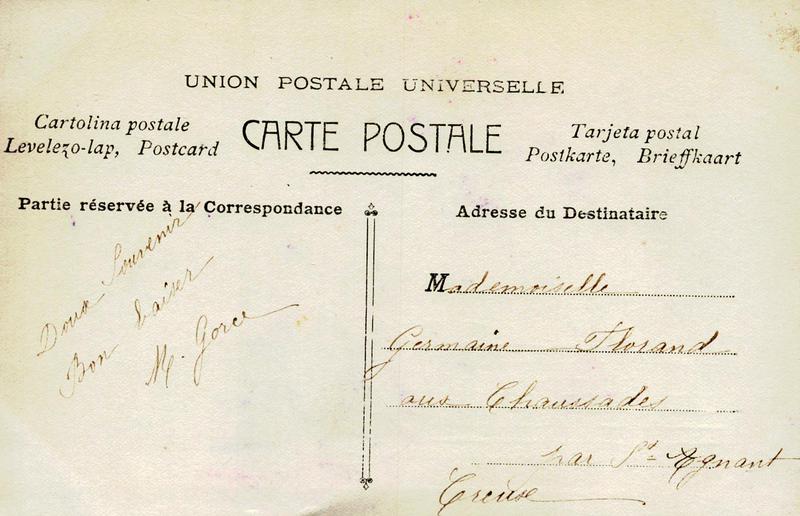 UNION POSTALE UNIVERSELLE
Cartolina postale
Levelezo-lap, Postcard
CARTE POSTALE
Tarjeta postal
Postkarte, Brieffkaart
Partie réservée à la Correspondance
Doux Souvenir
Bon baiser
M. Gorce
Adresse du Destinataire
Mademoiselle
Germaine Florand
aux Chaussades
par St Agnant
Creuse